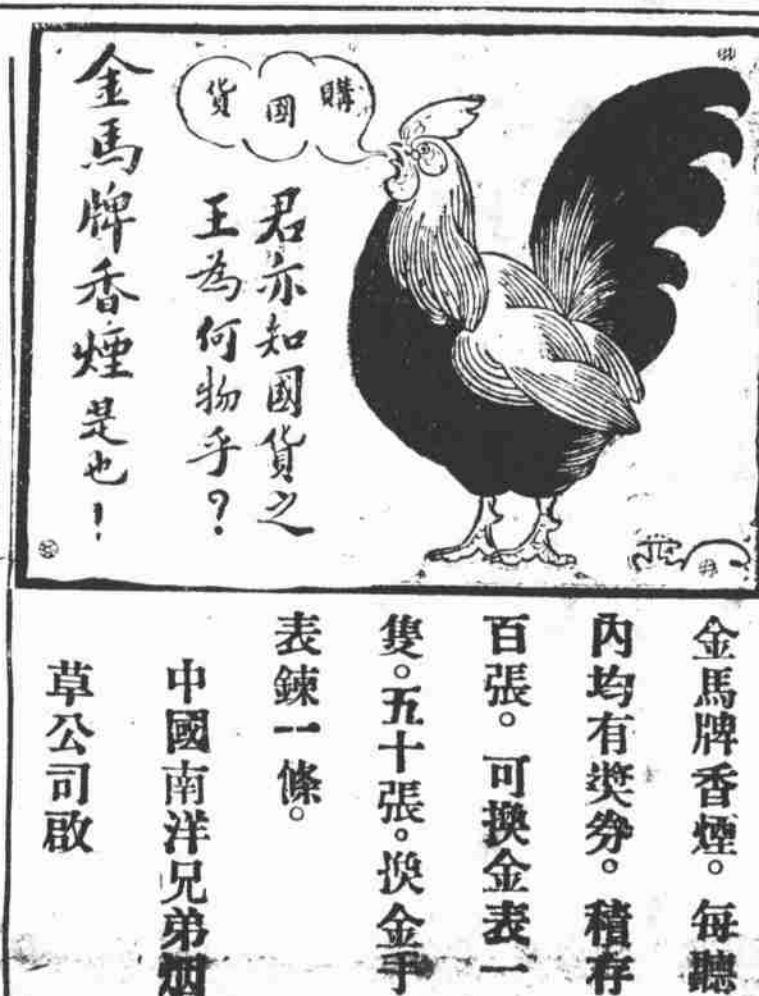 購國貨
君亦知國貨之
王為何物乎？
金馬牌香煙是也！
金馬牌香煙。每聽
內均有獎券。積存
百張。可換金表一
隻。五十張。換金手
表鍊一條。
中國南洋兄弟烟
草公司啟